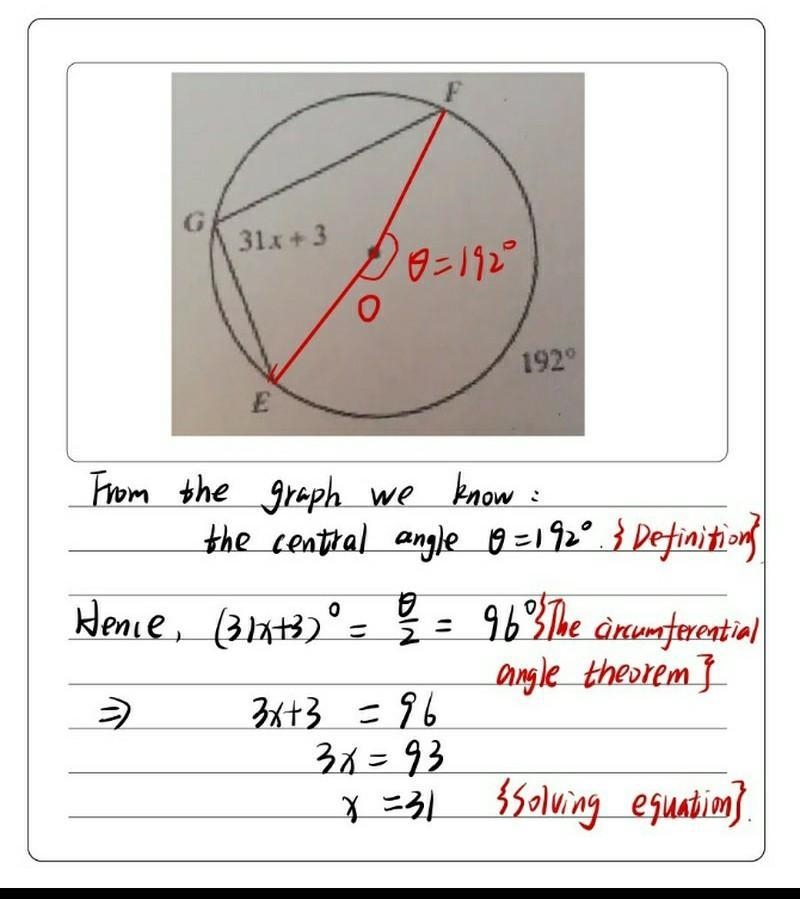 F
G
31x + 3
θ=192°
O
192°
E
From the graph we know :
the central angle θ=192°. {Definition}
Hence, (31x+3)° = θ/2 = 96° {The circumferential
angle theorem}
⇒ 3x+3 = 96
3x = 93
x =31 {Solving equation}.